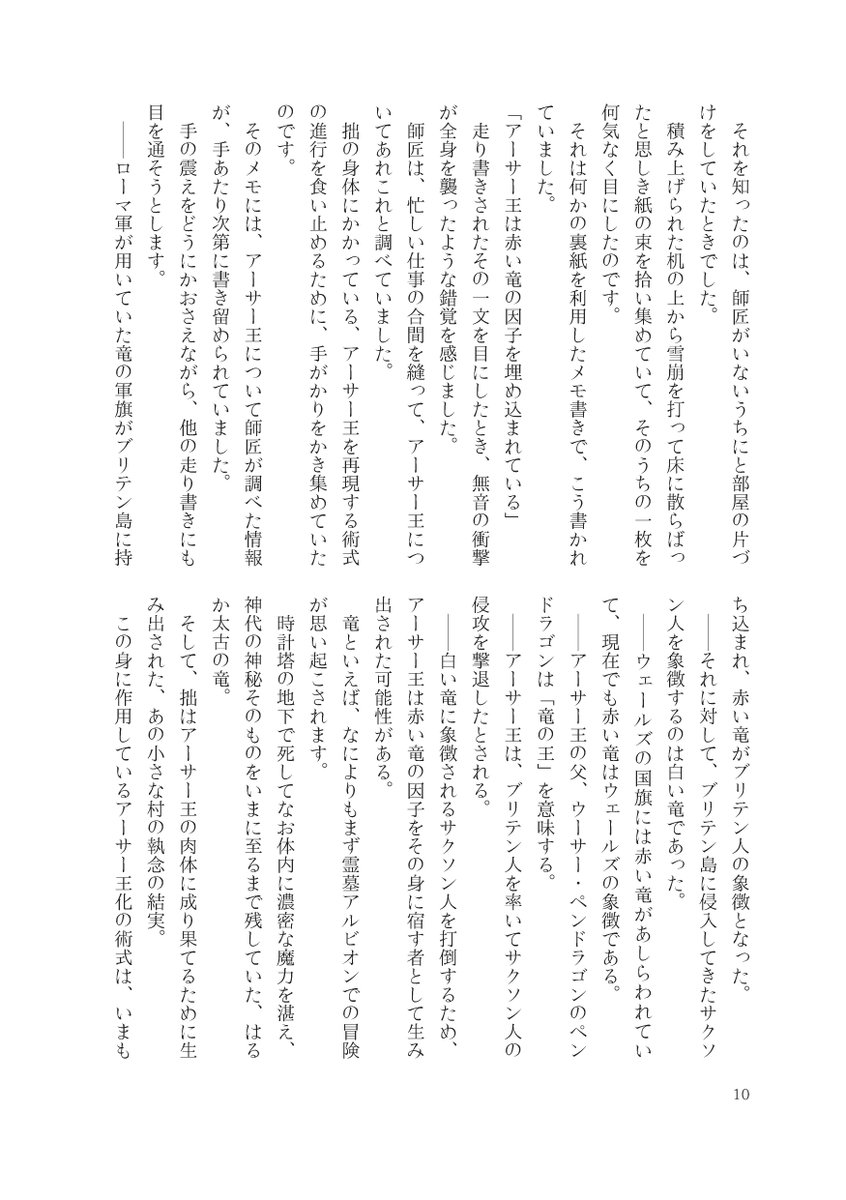 それを知ったのは、師匠がいないうちにと部屋の片づ
けをしていたときでした。
　積み上げられた机の上から雪崩を打って床に散らばっ
たと思しき紙の束を拾い集めていて、そのうちの一枚を
何気なく目にしたのです。
　それは何かの裏紙を利用したメモ書きで、こう書かれ
ていました。
「アーサー王は赤い竜の因子を埋め込まれている」
　走り書きされたその一文を目にしたとき、無音の衝撃
が全身を襲ったような錯覚を感じました。
　師匠は、忙しい仕事の合間を縫って、アーサー王につ
いてあれこれと調べていました。
　拙の身体にかかっている、アーサー王を再現する術式
の進行を食い止めるために、手がかりをかき集めていた
のです。
　そのメモには、アーサー王について師匠が調べた情報
が、手あたり次第に書き留められていました。
　手の震えをどうにかおさえながら、他の走り書きにも
目を通そうとします。
　――ローマ軍が用いていた竜の軍旗がブリテン島に持
ち込まれ、赤い竜がブリテン人の象徴となった。
　――それに対して、ブリテン島に侵入してきたサクソ
ン人を象徴するのは白い竜であった。
　――ウェールズの国旗には赤い竜があしらわれてい
て、現在でも赤い竜はウェールズの象徴である。
　――アーサー王の父、ウーサー・ペンドラゴンのペン
ドラゴンは「竜の王」を意味する。
　――アーサー王は、ブリテン人を率いてサクソン人の
侵攻を撃退したとされる。
　――白い竜に象徴されるサクソン人を打倒するため、
アーサー王は赤い竜の因子をその身に宿す者として生み
出された可能性がある。
　竜といえば、なによりもまず霊墓アルビオンでの冒険
が思い起こされます。
　時計塔の地下で死してなお体内に濃密な魔力を湛え、
神代の神秘そのものをいまに至るまで残していた、はる
か太古の竜。
　そして、拙はアーサー王の肉体に成り果てるために生
み出された、あの小さな村の執念の結実。
　この身に作用しているアーサー王化の術式は、いまも
10